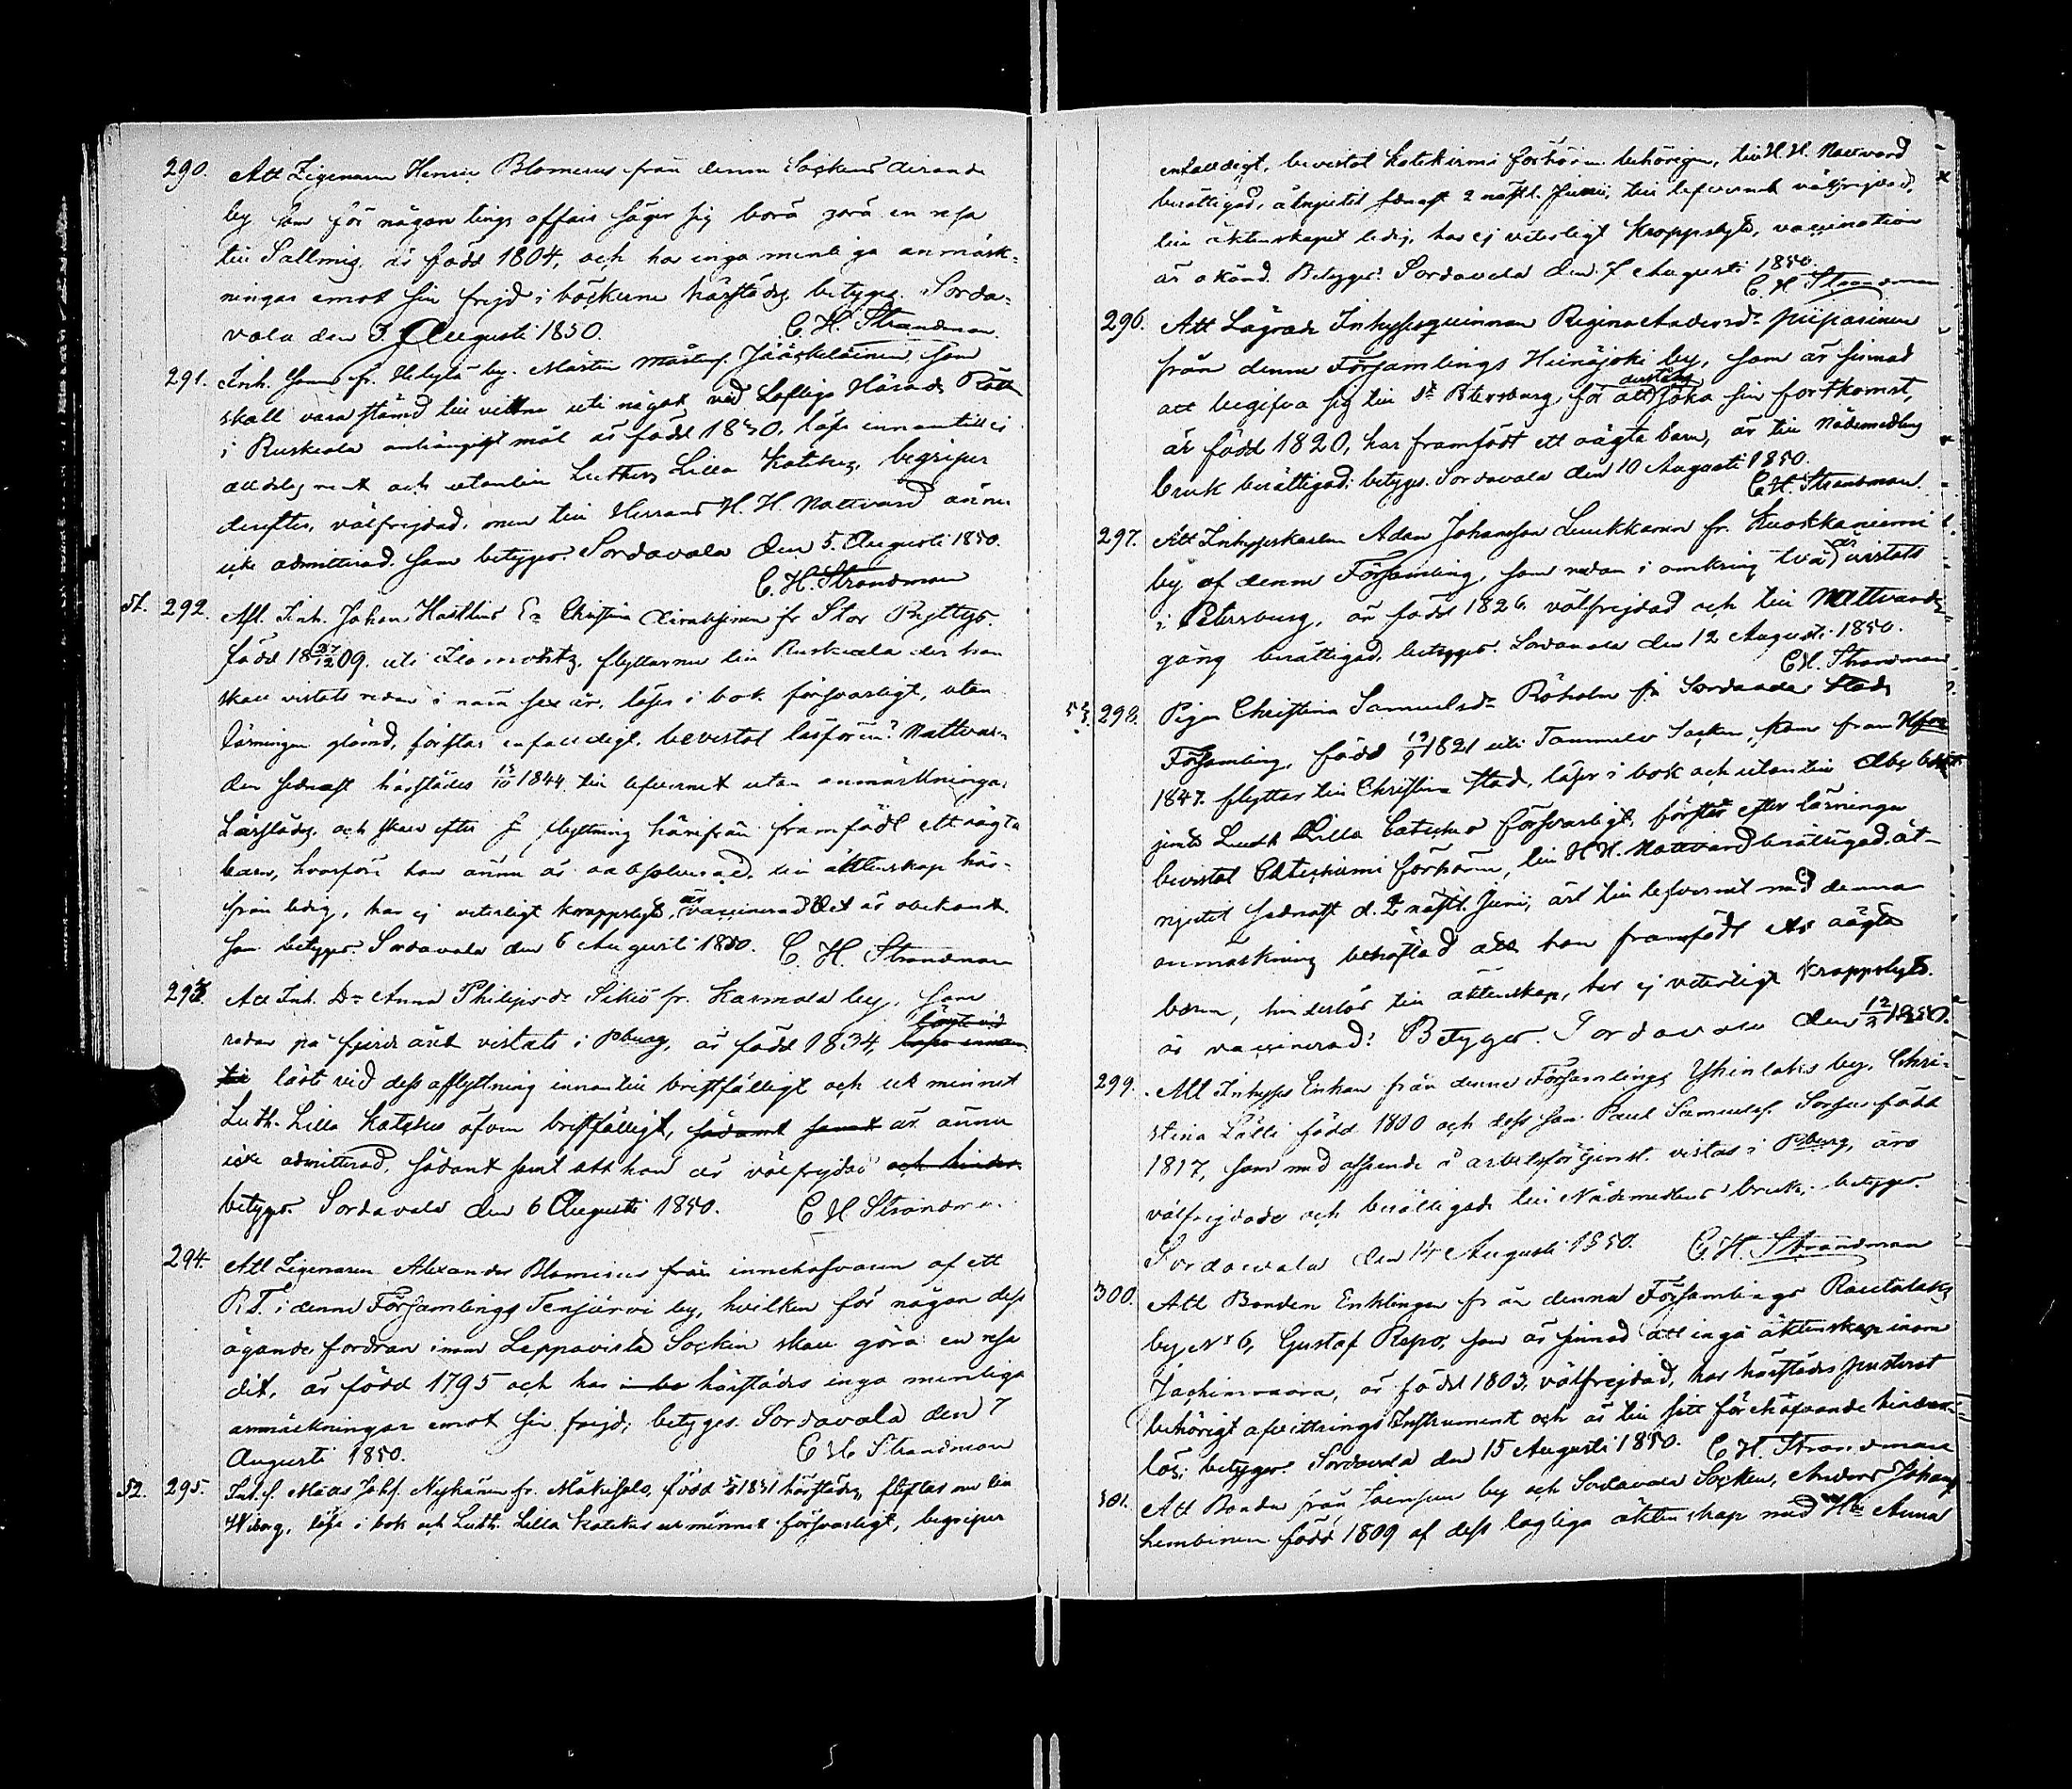 290. Att Zigenaren Henric Blomerus från denna Sockens Airanda
by som för någon tings affair säger sig börá göra en resa
till Sallmis, är född 1804, och har inga menliga anmärk-
ningar emot sin frejd i böckerne härstädes betygas. Sorda-
vala den 3. Augusti 1850. C. H. Strandman
291. Inh. Son fr. Helylä by. Mårten Mårtens. Jääskeläinen som
skall vara stämd till vittne uti något vid Lofliga Härads Rätten
i Ruskeala anhängigt mål är född 1830, läser innantill ej
alldeles rent och utantill Luthers Lilla Kateches, begriper
derefter, välfrejdad, men till Herrans H. H. Nattvard ännu
icke admitterad. som betygar Sordavala den 5. Augusti 1850.
C. H. Strandman
51. 292. Afl. Inh. Johan Hasklins Ea Christina fr Stor Ryttys.
född 18 27/12 09. uti Ilomantz, flyttar nu till Ruskeala der hon
skall vistats redan i nära sex år, läser i bok försvarligt, utan
läsningen glömd, förstår enfaldigt, bevistat läsförhör? Nattvar-
den sednast härstädes 13/10 1844 till lefvernet utan anmärkningar
härstädes, och skall efter flyttning härifrån framfödt ett oägta
barn, hvarföre hon ännu är oabsolverad, till äktenskap här-
ifrån ledig, har ej veterligt kroppslyte, är vaccinerad? det är obekant.
som betygar Sordavala den 6 Augusti 1850. C. H. Strandman
293. Att Inh. Dr Anna Philipsdr Sikiö fr. Karmala by. som
redan på fjerde året vistats i Pburg, är född 1834, läste vid läser innan
till läste vid dess afflyttning innantill bristfälligt och ur minnet
Luth. Lilla Katches äfven bristfälligt, sådant samt är ännu
icke admitterad, sådant samt att hon är välfrejdad och hinder
betygar Sordavala den 6 Augusti 1850. C H Strandman
294. Att Zigenaren Alexander Blomerus från innehafvaren af ett
P. T. i denna Församlings Tenjärvi by, hvilken för någon dess
ägande fordran inom Leppävirta Socken skall göra en resa
dit, är född 1795 och har härstädes inga menliga
anmärkningar emot sin frejd; betyges. Sordavala den 7
Augusti 1850. C H Strandman
52. 295. Inh. S. Matts Johs. Nykänen fr. Mäkisalo, född 1831 härstädes, flyttar nu till
Wiborg, läser i bok och Luth. Lilla Kateches ur minnet försvarligt, begriper
enfaldigt, bevistat Katekismi förhören behörigen, till H. H. Nattvard
berättigad, åtnjutit sednast 2 nästl. Junii, till lefvernet välfrejdad,
till äktenskapet ledig, har ej veterligt Kroppslyte, vaccination
är okänd. Betygar. Sordavala den 7 Augusti 1850.
C. H. Strandman
296. Att Lägrade Inhysesqvinnan Regina Andersdr Piiparinen
från denna Församlings Heinäjoki by, som är sinnad
att begifva sig till St Petersburg, för att derstädes söka sin fortkomst,
är född 1820, har framfödt ett oägta barn, är till Nådemedlens
bruk berättigad; betyges. Sordavala den 10 Augusti 1850.
C. H. Strandman.
297. Att Inhyseskarlen Adam Johansson Luukkanen fr. Kuokkaniemi
by af denna Församling, som redan i omkring två år vistats
i Petersburg, är född 1826. välfrejdad och till Nattvards-
gång berättigad, betygar. Sordavala den 12 Augusti 1850.
CH. Strandman
53. 298. Pigan Christina Samuelsdr Röholm fr Sordavala Stads
Församling, född 19/9 1821 uti Tammela Socken, kom från Hfors
1847. flyttar till Christina Stad, läser i bok och utantill
jemte Luth Lilla Cateches försvarligt, förstår efter läsningen
bevistat Catechismi förhören, till H H. Nattvard berättigad, åt-
njutit sednast d. 2 nästl. Junii, är till lefvernet med denna
anmärkning behäftad att hon framfödt ett oägta
barn, hinderlös till äktenskap, har ej veterligt kroppslyte.
är vaccinerad? Betygar. Sordavala den 12/8 1850.
299. Att Inhyses Enkan från denna Församlings Yhinlaks by, Chri-
stina Lälli född 1800 och dess son Paul Samuels. Sorsa född
1817, som med afseende å arbetsförtjenst vistas i Pburg, äro
välfrejdade och berättigade till Nådemedlens bruk; betygar.
Sordavala den 14 Augusti 1850. C. H. Strandman
300. Att Bonden Enklingen från denna Församlings Rautalaks
by No 6, Gustaf Repo, som är sinnad att ingå äktenskap inom
Jachimvaara, är född 1803, välfrejdad, har härstädes presterat
behörigt afvittrings Instrument och är till sitt förehafvande hinder-
lös; betygar. Sordavala den 15 Augusti 1850. C H. Strandman
301. Att Bonden från by och Sordavala Socken, Anders Johans.
född 1809 af dess lagliga äktenskap med Hu Anna